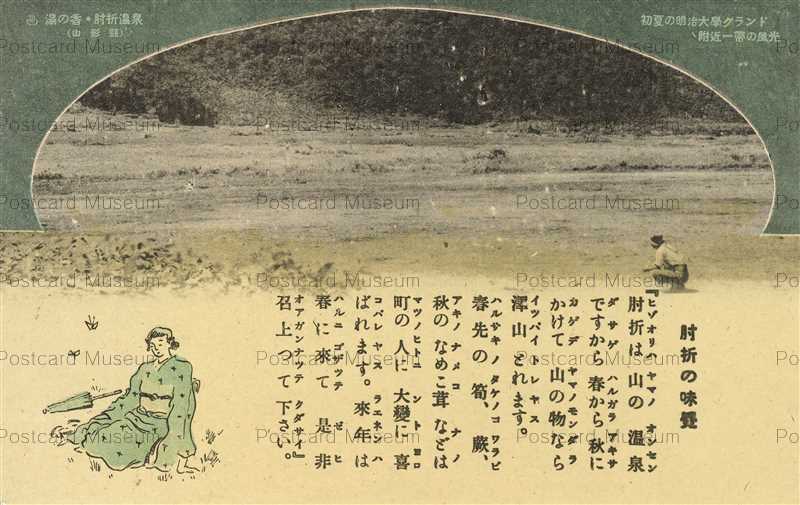 湯の香・肘折温泉
(山形縣)
初夏の明治大學グランド
附近一帶の風光
肘折の味覺
『ヒゾオリハ ヤマノ オンセン
肘折は 山の 温泉
ダ サゲ ハルガラ アキサ
ですから 春から 秋に
カゲデ ヤマノモンダラ
かけて 山の 物なら
イツパイ トレヤス
澤山 とれます。
ハルサキノ タケノコ ワラビ
春先の 筍、 蕨、
アキノ ナメコ ナノ
秋の なめこ茸 などは
マツノヒトニ ントヨロ
町の人に 大變に 喜
コバレヤス ラエネンハ
ばれます。 來年は
ハルニ ゴザツテ ゼヒ
春に 來て 是非
オアガンナツテ クダサイ』
召上つて 下さい。
Postcard Museum